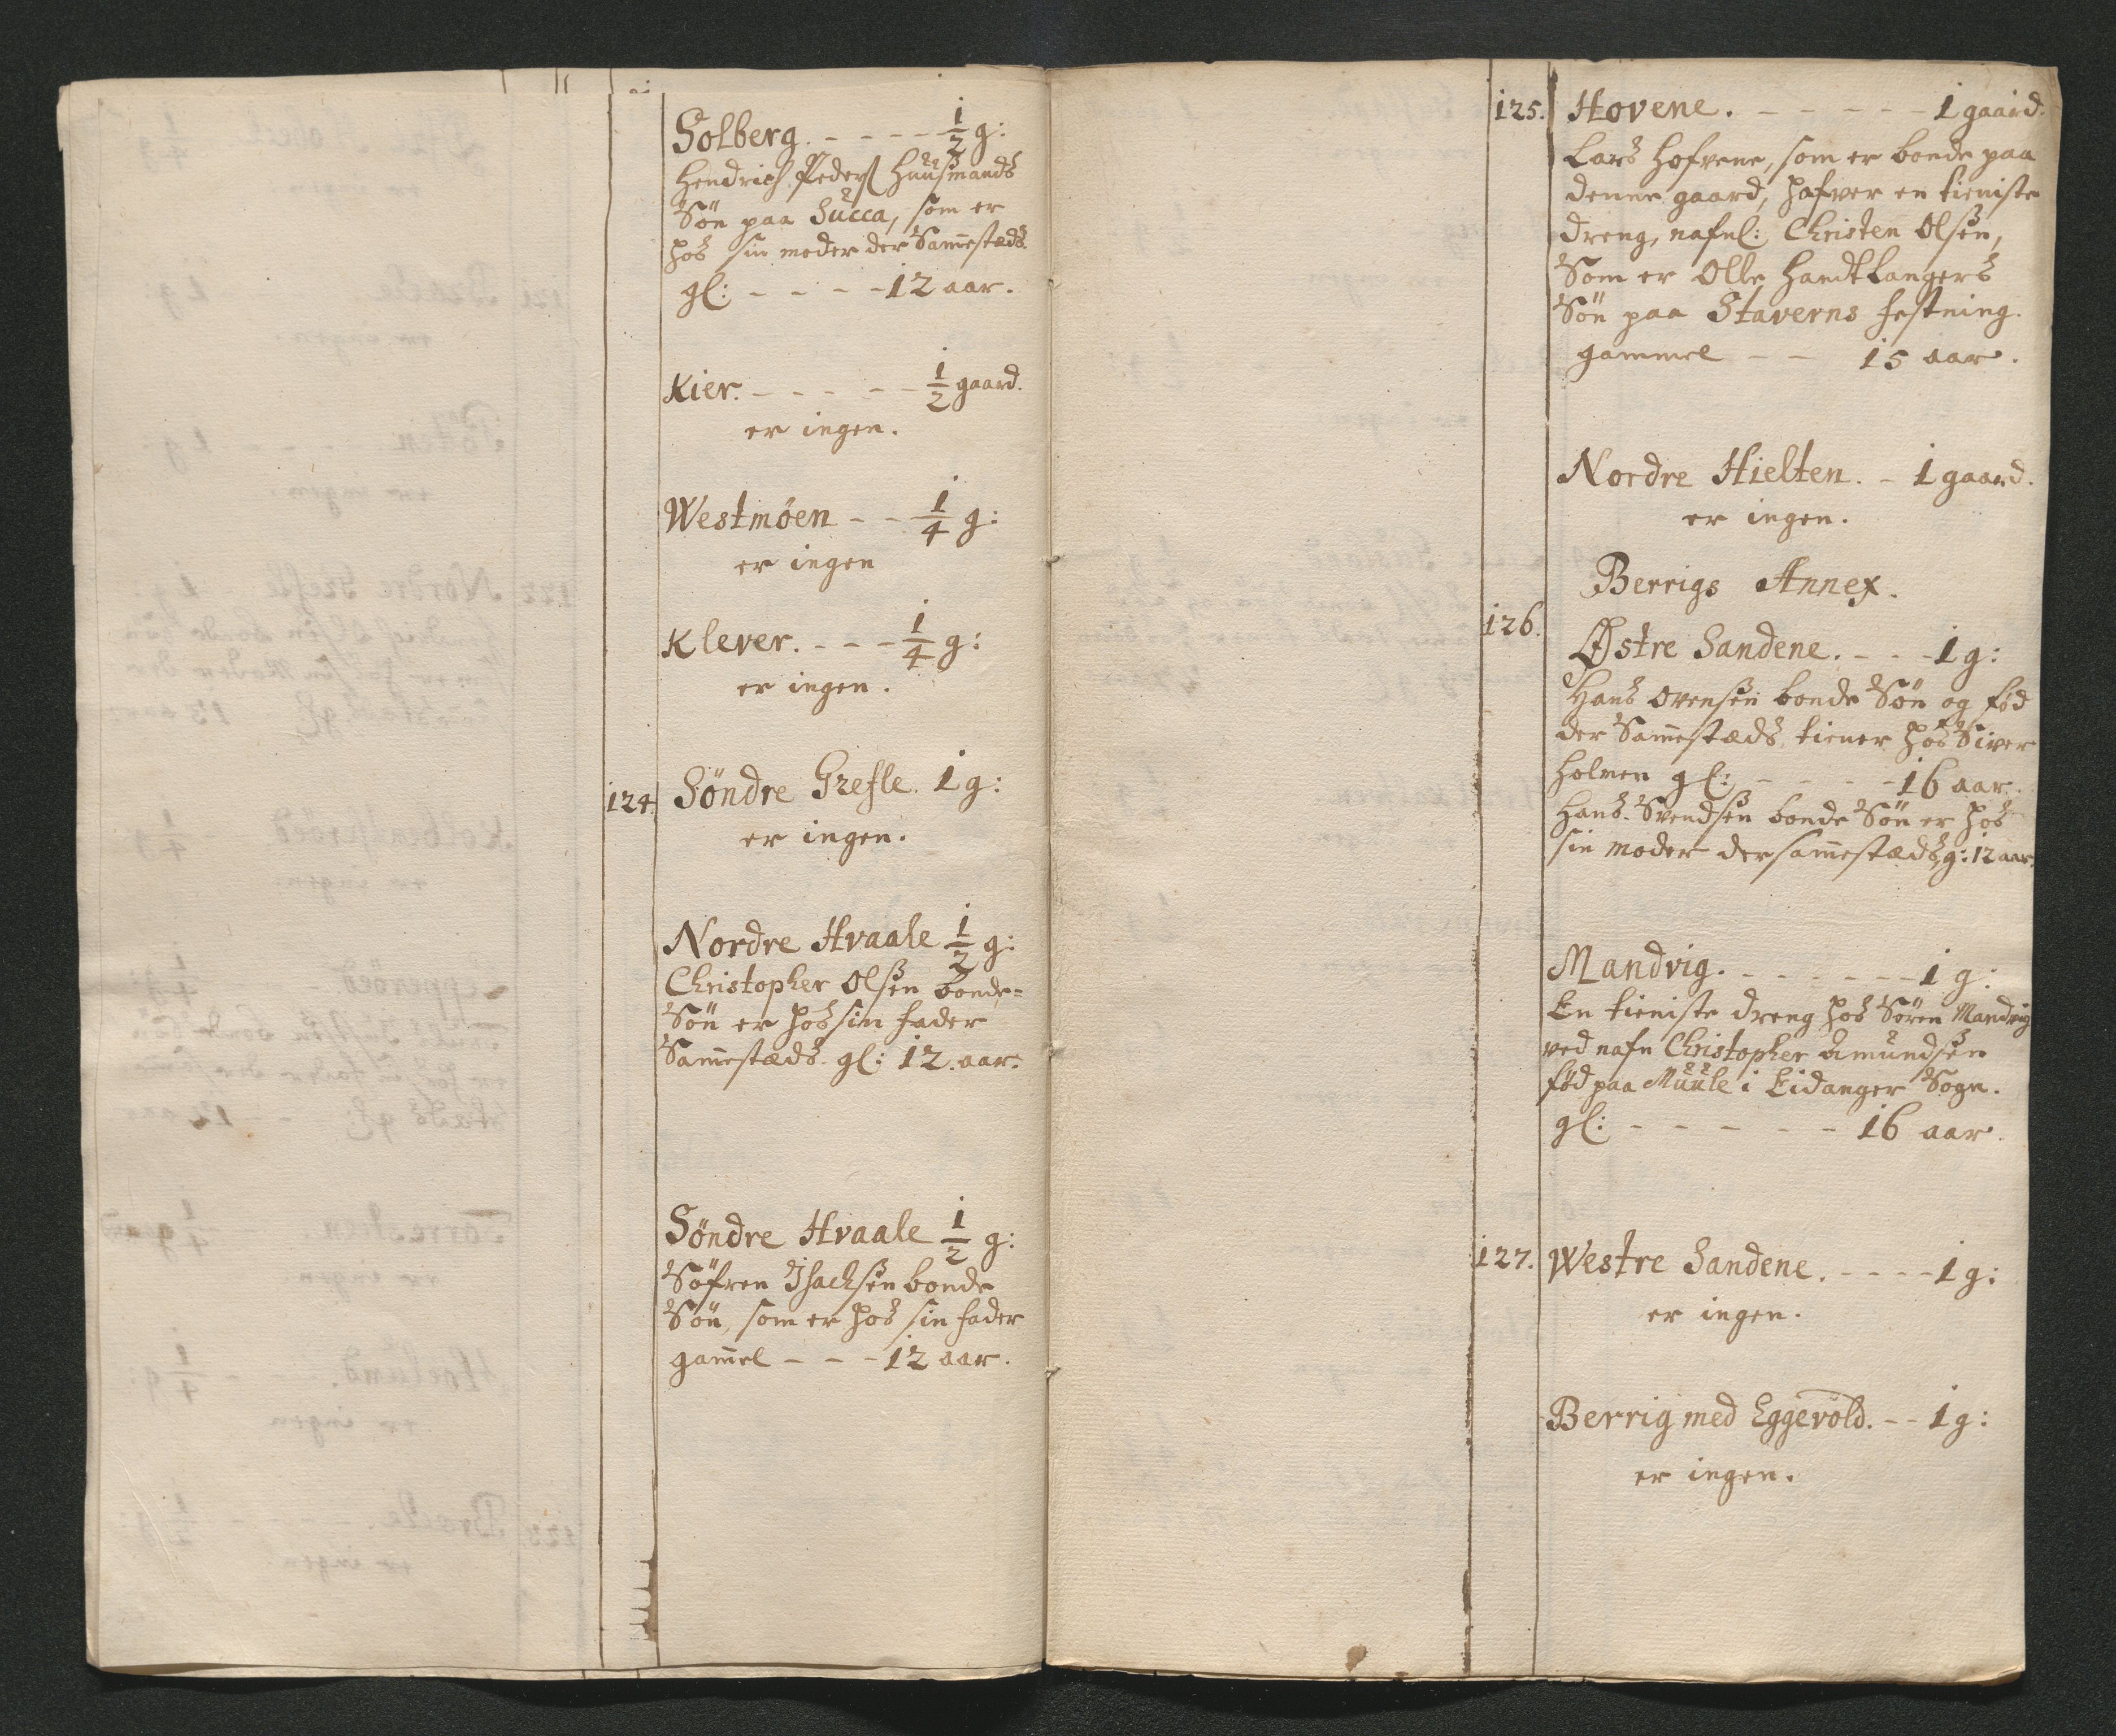 Solberg. - - - - 1/2 g:
Hendrich Peders Huusmands
Søn paa Succa, som er
hos sin moder der Sammestæds.
gl: - - - - 12 aar.
Kier. - - - - - 1/2 gaard.
er ingen.
Westmöen - - 1/4 g:
er ingen
Klever. - - - 1/4 g:
er ingen.
124. Söndre Grefle. 1 g:
er ingen.
Nordre Hvaale 1/2 g:
Christopher Olsen bonde-
Søn er hos sin fader
Sammestæds. gl: 12. aar.
Söndre Hvaale 1/2 g:
Söfren Isachsen bonde
Søn, som er hos sin fader
gammel - - - 12 aar.
125. Hovene. - - - - - 1 gaard.
Lars Hofvene, som er bonde paa
denne gaard, hafver en tieniste
dreng, nafnl: Christen Olsen,
Som er Olle Handtlangers
Søn paa Staverns festning.
gammel - - 15 aar.
Nordre Hielten. - 1 gaard.
er ingen.
Berrigs Annex.
126. Østre Sandene. - - - 1 g:
Hans Ovensen bonde Søn og föd
der Sammestæds, tiener hos Siver
Holmen gl: - - - - 16 aar.
Hans Svendsen bonde Søn er hos
sin moder dersammestæds, g: 12 aar.
Mandvig. - - - - - - 1 g:
En tieniste dreng hos Sören Mandvig
ved nafn Christopher Amundsen
föd paa Muule i Eidanger Sogn.
gl: - - - - - 16 aar.
127. Westre Sandene. - - - - 1 g:
er ingen.
Berrig med Eggevold. - - 1 g:
er ingen.